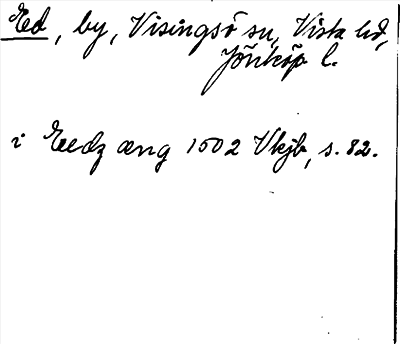 Ed, by, Visingsö sn, Vista hd,
Jönköp l.
i Eedz æng 1502 Vkjb, s. 82.